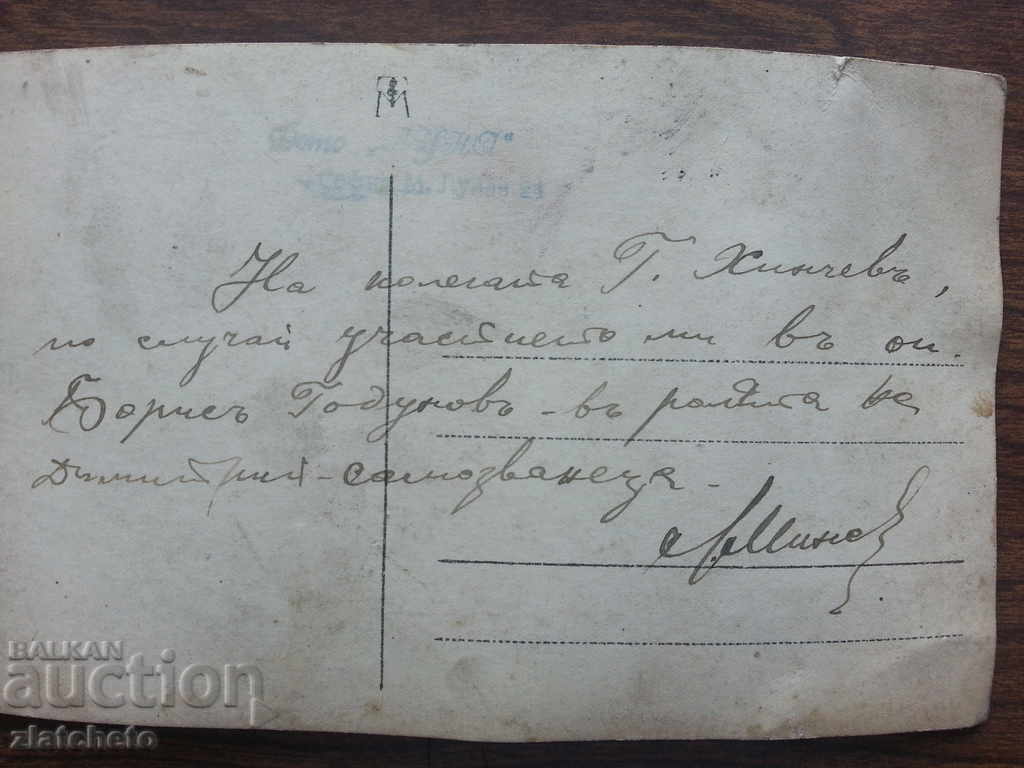 Фото "УНА"
София
На колегата Г. Хинчевъ,
по случай участието ми въ оп.
Борисъ Годуновъ - въ ролята на
Димитрий - самозванеца -
Минев
BALKAN
auction
zlatcheto